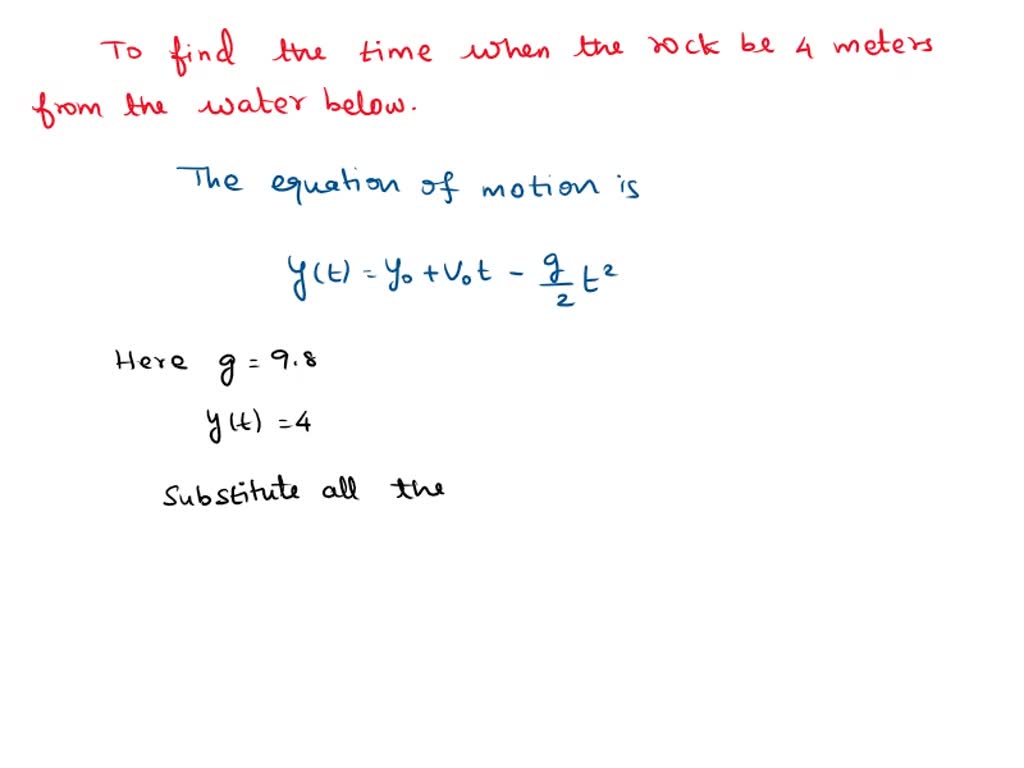 To find the time when the rock be 4 meters
from the water below.
The equation of motion is
y(t) = y₀ + v₀t - g/2 t²
Here g = 9.8
y(t) = 4
Substitute all the